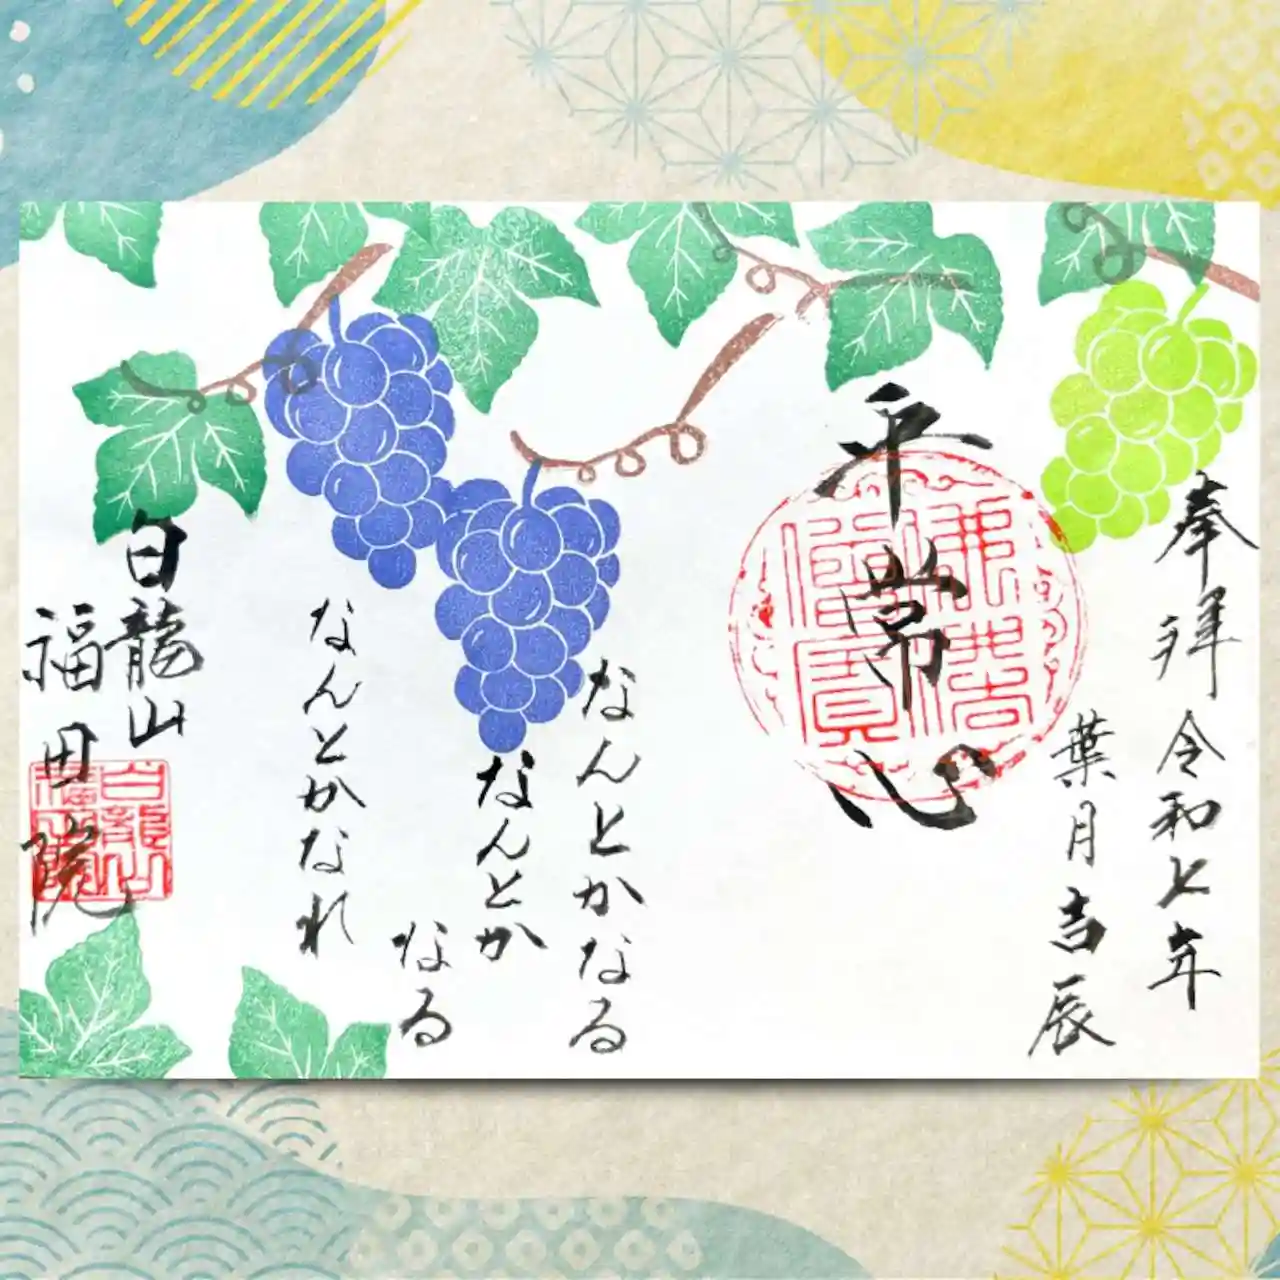 奉拝 令和七年
葉月吉辰
平常心
佛法僧寳
なんとかなる
なんとか
なる
なんとかなれ
白龍山
福田院
白龍山
福田院